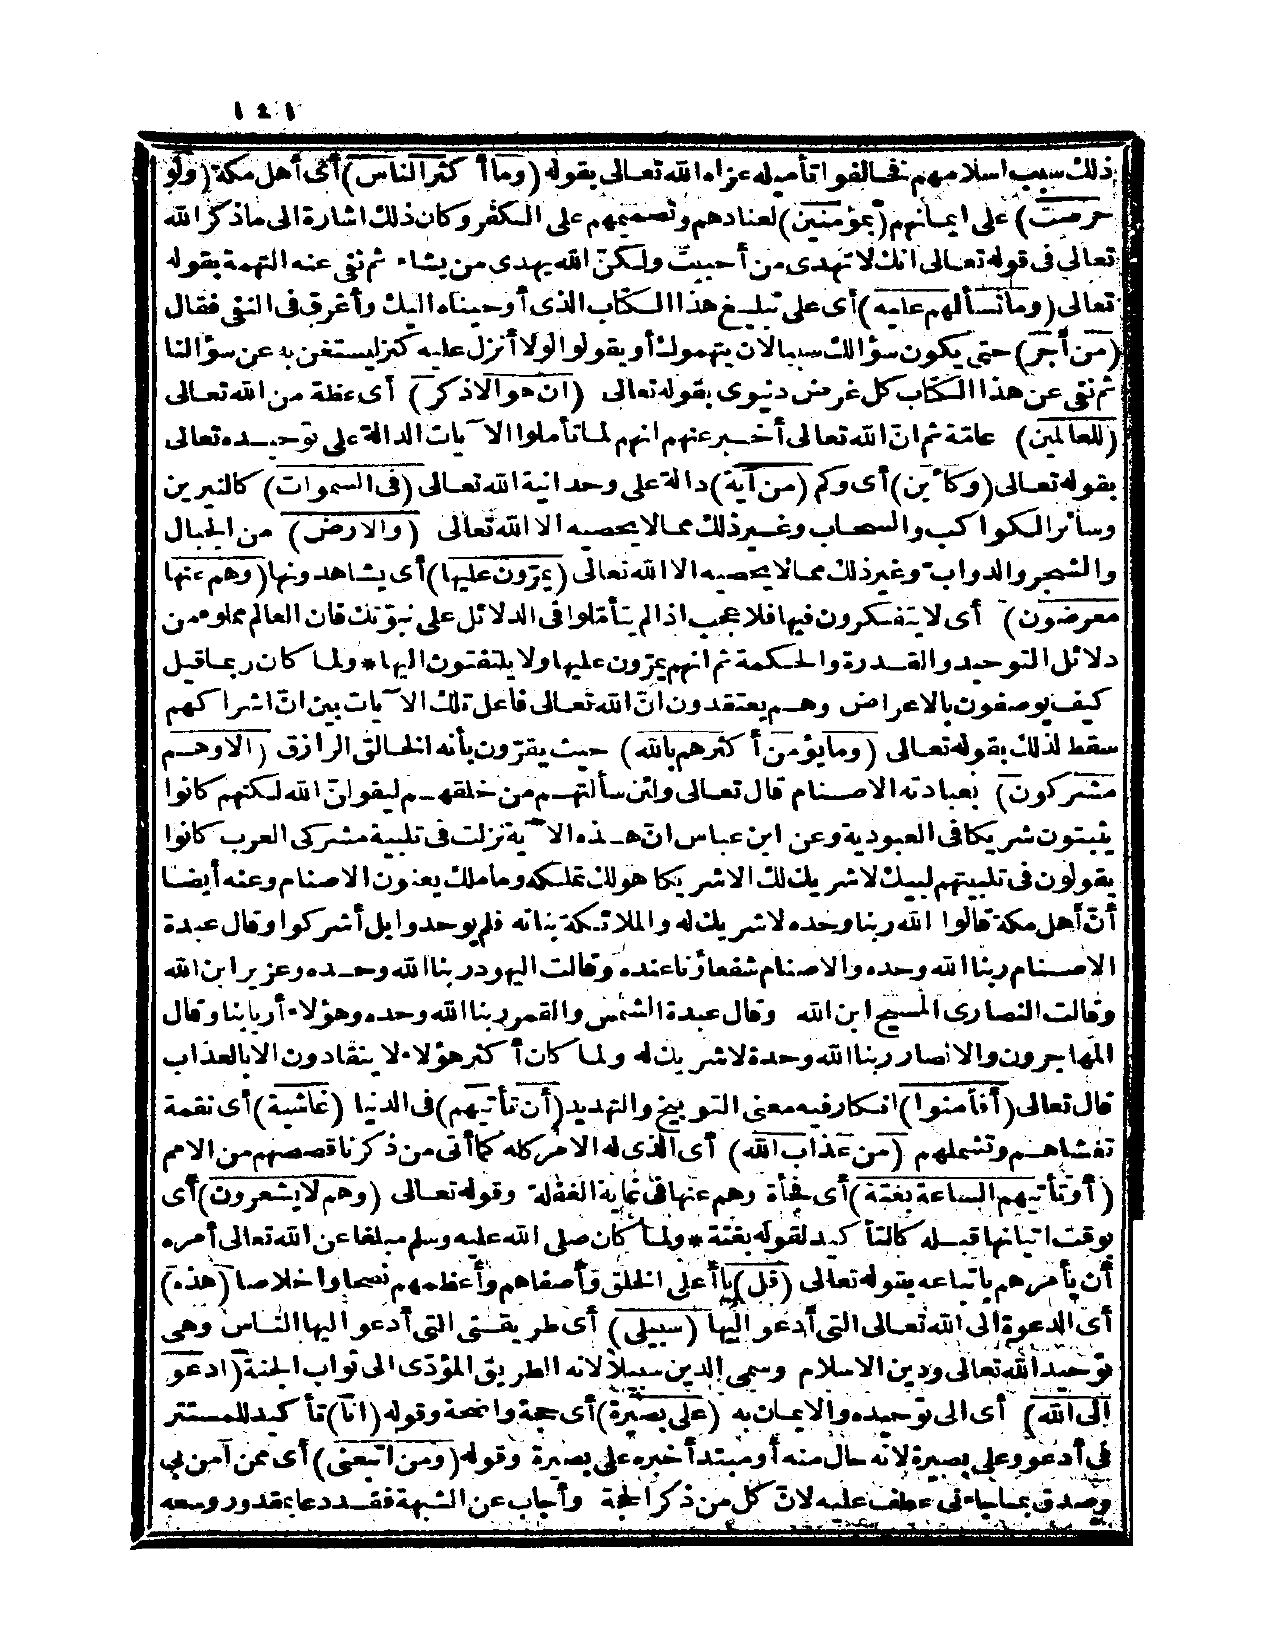 ١٤١
ذلك سبب اسلامهم فخالفوا تأميله عزاه الله تعالى بقوله (وما أكثر الناس) أى أهل مكة (ولو
حرصت) على ايمانهم (بمؤمنين) لعنادهم وتصميمهم على الكفر وكان ذلك اشارة الى ما ذكر الله
تعالى فى قوله تعالى انك لا تهدى من أحببت ولكن الله يهدى من يشاء ثم نفى عنه التهمة بقوله
تعالى (وما تسألهم عليه) أى على تبليغ هذا الكتاب الذى أوحيناه اليك وأغرق فى النفى فقال
(من أجر) حتى يكون سؤالك سببا لان يتهموك أو يقولوا لولا أنزل عليه كنز ليستغن به عن سؤالنا
ثم نفى عن هذا الكتاب كل غرض دنيوى بقوله تعالى (ان هو الا ذكر) أى عظة من الله تعالى
(للعالمين) عامّة ثم انّ الله تعالى أخبر عنهم انهم لما تأملوا الآيات الدالة على توحيده تعالى
بقوله تعالى (وكأين) أى وكم (من آية) دالة على وحدانية الله تعالى (فى السموات) كالنيرين
وسائر الكواكب والسحاب وغير ذلك مما لا يحصيه الا الله تعالى (والارض) من الجبال
والشجر والدواب وغير ذلك مما لا يحصيه الا الله تعالى (يمرّون عليها) أى يشاهدونها (وهم عنها
معرضون) أى لا يتفكرون فيها فلا عجب اذا لم يتأملوا فى الدلائل على نبوّتك فان العالم مملوء من
دلائل التوحيد والقدرة والحكمة ثم انهم يمرّون عليها ولا يلتفتون اليها * ولما كان ربما قيل
كيف يوصفون بالاعراض وهم يعتقدون انّ الله تعالى فاعل تلك الآيات بين انّ اشراكهم
سقط لذلك بقوله تعالى (وما يؤمن أكثرهم بالله) حيث يقرّون بأنه الخالق الرازق (الا وهم
مشركون) بعبادته الاصنام قال تعالى ولئن سألتهم من خلقهم ليقولنّ الله لكنهم كانوا
يثبتون شريكا فى العبودية وعن ابن عباس انّ هذه الآية نزلت فى تلبية مشركى العرب كانوا
يقولون فى تلبيتهم لبيك لا شريك لك الا شريكا هو لك تملكه وما ملك يعنون الاصنام وعنه أيضا
أنّ أهل مكة قالوا الله ربنا وحده لا شريك له والملائكة بناته فلم يوحدوا بل أشركوا وقال عبدة
الاصنام ربنا الله وحده والاصنام شفعاؤنا عنده وقالت اليهود ربنا الله وحده وعزير ابن الله
وقالت النصارى المسيح ابن الله وقال عبدة الشمس والقمر ربنا الله وحده وهؤلاء أربابنا وقال
المهاجرون والانصار ربنا الله وحده لا شريك له ولما كان أكثر هؤلاء لا ينقادون الا بالعذاب
قال تعالى (أفأمنوا) انكار فيه معنى التوبيخ والتهديد (أن تأتيهم) فى الدنيا (غاشية) أى نقمة
تغشاهم وتشملهم (من عذاب الله) أى الذى له الامر كله كما أتى من ذكرنا قصصهم من الامم
(أو تأتيهم الساعة بغتة) أى فجأة وهم عنها فى غاية الغفلة وقوله تعالى (وهم لا يشعرون) أى
بوقت اتيانها قبله كالتأكيد لقوله بغتة * ولما كان صلى الله عليه وسلم مبلغا عن الله تعالى أمره
أن يأمرهم باتباعه بقوله تعالى (قل) يا أعلى الخلق وأصفاهم وأعظمهم نصحا واخلاصا (هذه)
أى الدعوة الى الله تعالى التى أدعو اليها (سبيلى) أى طريقتى التى أدعو اليها الناس وهى
توحيد الله تعالى ودين الاسلام وسمى الدين سبيلا لانه الطريق المؤدّى الى ثواب الجنة (ادعو
الى الله) أى الى توحيده والايمان به (على بصيرة) أى حجة واضحة وقوله (انا) تأكيد للمستتر
فى أدعو وعلى بصيرة لانه حال منه أو مبتدأ خبره على بصيرة وقوله (ومن اتبعنى) أى ممن آمن بى
وصدق بما جاءنى عطف عليه لانّ كل من ذكر الحجة وأجاب عن الشبهة فقد دعا بمقدور وسعه